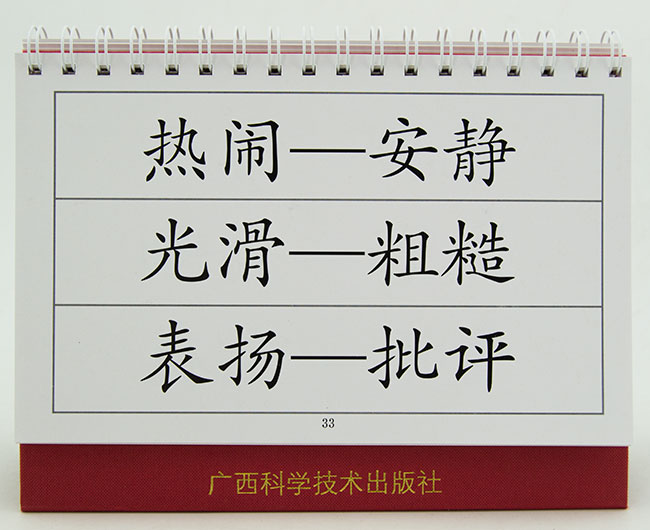 热闹—安静
光滑—粗糙
表扬—批评
33
广西科学技术出版社